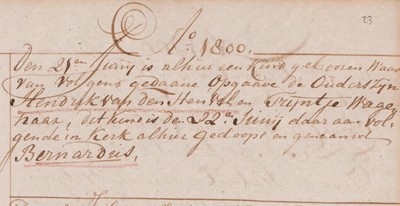 23
Ao 1800.
Den 21en Junij is alhier een kind gebooren Waar
van volgens gedaane Opgaave de Ouders zijn
Hendrik van den Heuvel en Trijntje Wage
naar, dit kind is den 22en Junij daar aan vol
gende in kerk alhier gedoopt en genaamd
Bernardus,